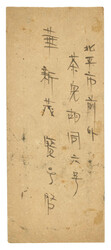 北平市前外
茶兒胡同六号
華新茂寶号啓